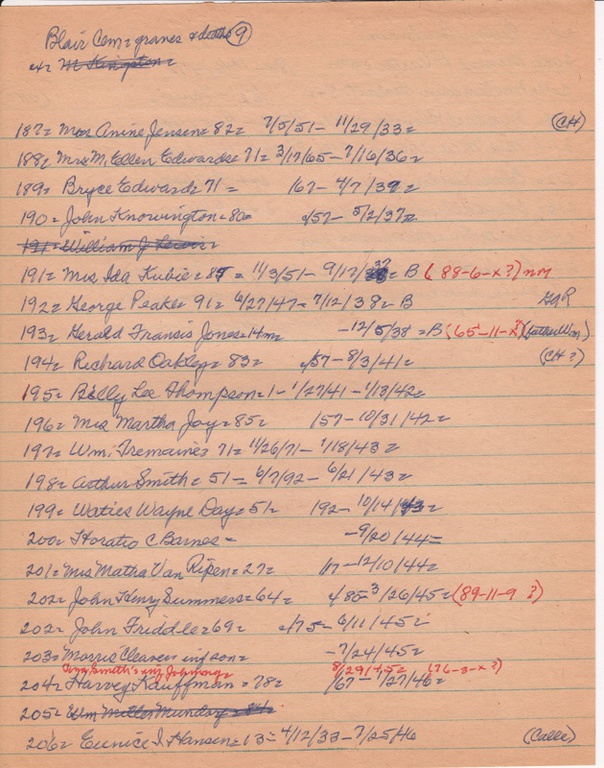 Blair Cem= graves & deaths (9)
M Kingston=
187= Mrs Anine Jensen= 82= 7/5/51- 11/29/33= (CH)
188= Mrs M. Ellen Edwards= 71= 3/17/65- 7/16/36=
189= Bryce Edwards 71= 67- 4/7/39=
190= John Knowington= 80= c/57- 5/2/37=
191= William J Lewis=
191= Mrs Ida Kubie= 85= 11/3/51- 9/17/37= B (88-6-x?) nm
192= George Peake= 91= 6/27/47- 7/12/38= B
193= Gerald Francis Jones= 14m -12/5/38 =B (65-11-x?) (father Wm.)
194= Richard Oakley= 83= c/57- 8/3/41= (CH?)
195= Billy Lee Thompson= 1- 1/27/41- 1/13/42=
196= Mrs Martha Joy= 85= 157- 10/31/42=
197= Wm. Tremaine= 71= 11/26/71- 1/18/43=
198= Arthur Smith= 51- 6/7/92- 6/21/43=
199= Waties Wayne Day= 51= 192- 10/14/43=
200= Horatio C Barnes- -9/20/44=
201= Mrs Matha Van Ripen= 27= 17- 12/10/44=
202= John Henry Summers= 64= c/80- 3/26/45= (89-11-9?)
202= John Friddle= 69= c/75- 6/11/45=
203= Morris Cleavers inf son= -7/24/45=
Smith's inf 8/29/45= (76-3-x?)
204= Harvey Kauffman= 78= 1/67- 1/27/46=
205= Wm Miller Munday= 84=
206= Eunice I. Hansen= 13= 4/12/33- 7/25/46 (Calle)